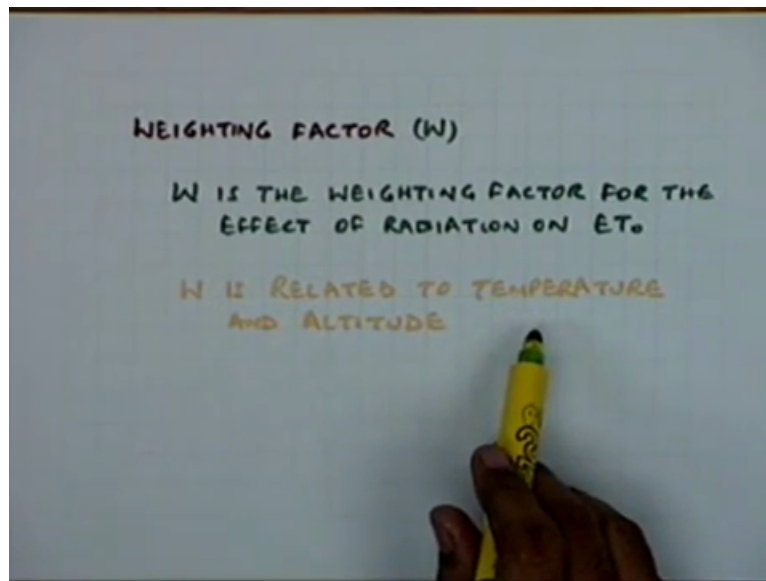 WEIGHTING FACTOR (W)
W IS THE WEIGHTING FACTOR FOR THE
EFFECT OF RADIATION ON ETo
W IS RELATED TO TEMPERATURE
AND ALTITUDE